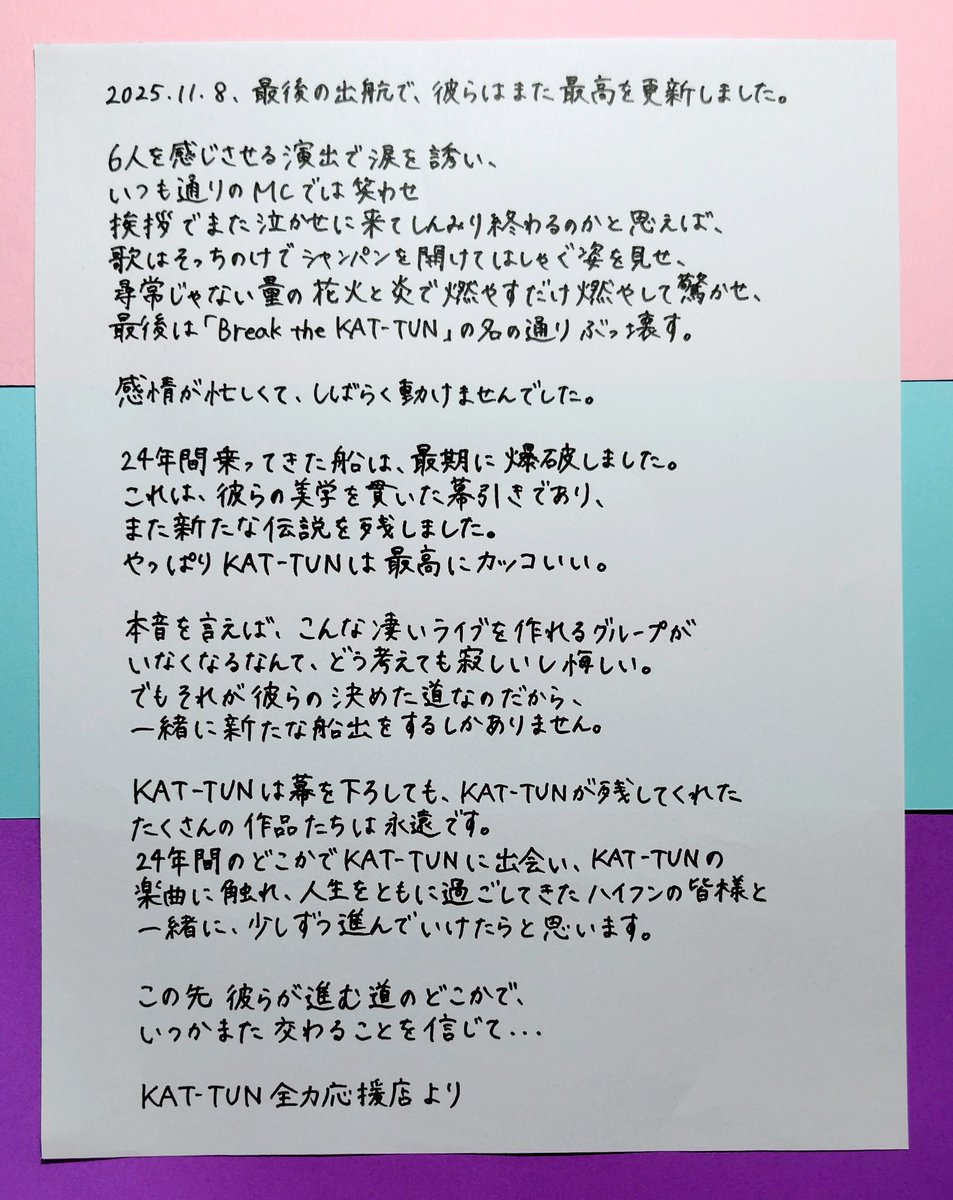 2025.11.8、最後の出航で、彼らはまた最高を更新しました。
6人を感じさせる演出で涙を誘い、
いつも通りのMCでは笑わせ
挨拶でまた泣かせに来てしんみり終わるのかと思えば、
歌はそっちのけでシャンパンを開けてはしゃぐ姿を見せ、
尋常じゃない量の花火と炎で燃やすだけ燃やして驚かせ、
最後は「Break the KAT-TUN」の名の通りぶっ壊す。
感情が忙しくて、しばらく動けませんでした。
24年間乗ってきた船は、最期に爆破しました。
これは、彼らの美学を貫いた幕引きであり、
また新たな伝説を残しました。
やっぱりKAT-TUNは最高にカッコいい。
本音を言えば、こんな凄いライブを作れるグループが
いなくなるなんて、どう考えても寂しいし悔しい。
でもそれが彼らの決めた道なのだから、
一緒に新たな船出をするしかありません。
KAT-TUNは幕を下ろしても、KAT-TUNが残してくれた
たくさんの作品たちは永遠です。
24年間のどこかでKAT-TUNに出会い、KAT-TUNの
楽曲に触れ、人生をともに過ごしてきたハイフンの皆様と
一緒に、少しずつ進んでいけたらと思います。
この先 彼らが進む道のどこかで、
いつかまた交わることを信じて...
KAT-TUN全力応援店より